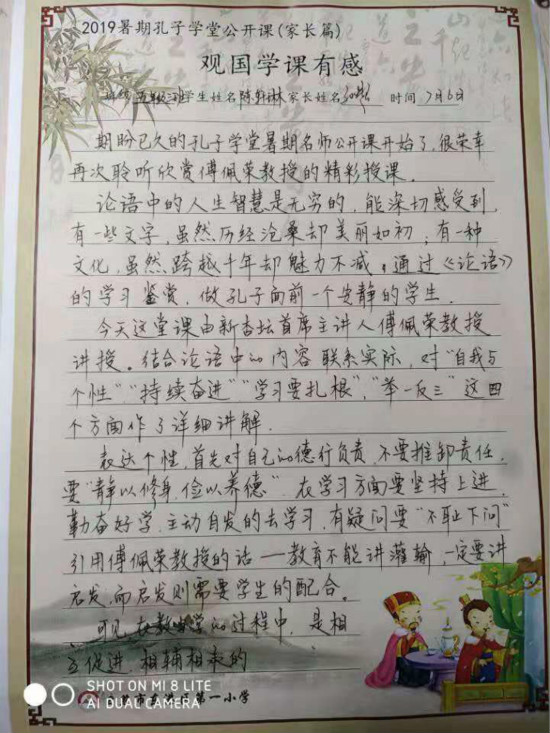 2019暑期孔子学堂公开课(家长篇)
观国学课有感
班级 五年级 学生姓名 陈 琳 家长姓名 时间 7月6日
期盼已久的孔子学堂暑期名师公开课开始了,很荣幸
再次聆听欣赏傅佩荣教授的精彩授课.
论语中的人生智慧是无穷的,能深切感受到,
有一些文字,虽然历经沧桑却美丽如初;有一种
文化,虽然跨越千年却魅力不减。通过《论语》
的学习鉴赏,做孔子面前一个安静的学生.
今天这堂课由新杏坛首席主讲人傅佩荣教授
讲授。结合论语中的内容联系实际,对"自我与
个性""持续奋进""学习要扎根","举一反三"这四
个方面作了详细讲解.
表达个性,首先对自己的德行负责,不要推卸责任,
要"静以修身,俭以养德".在学习方面要坚持上进,
勤奋好学,主动自发的去学习,有疑问要"不耻下问"
引用傅佩荣教授的话——教育不能讲灌输,一定要讲
启发,而启发则需要学生的配合。
可见,在教与学的过程中,是相
互促进,相辅相承的
SHOT ON MI 8 LITE
AI DUAL CAMERA
市 第一小学